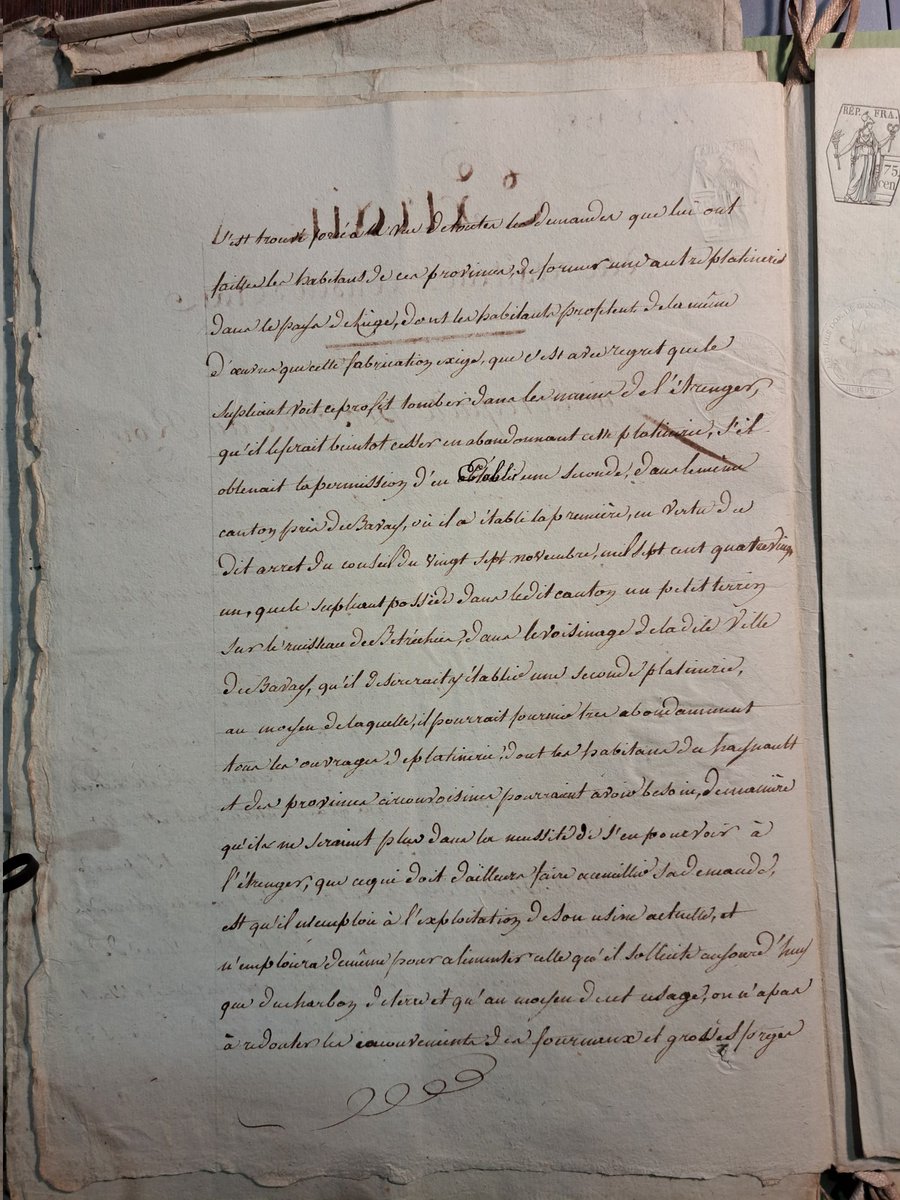 s'est trouvé forcé à la vue de toutes les demandes que lui ont
faittes les habitans de ces provinces, de former une autre platinerie
dans le pays de Liège, dont les habitants profitent de la même
d'œuvre que cette fabrication exige, que c'est avec regret que le
supliant voit ce profit tomber dans les mains de l'étrenger,
qu'il le ferait bientot cesser en abandonnant cette platinerie, s'il
obtenait la permission d'en établir une seconde, dans le même
canton près de Bavay, où il a établi la première, en vertu du
dit arret du conseil du vingt sept novembre, mil sept cent quatre vingt
un, que le supliant possède dans ledit canton un petit terrein
sur le ruisseau de Bétréchies, dans le voisinage de la dite Ville
de Bavay, qu'il desirerait y établir une seconde platinerie,
au moyen de laquelle, il pourrait fournir très abondamment
tous les ouvrages de platinerie, dont les habitans du haynault
et des provinces circonvoisines pourraient avoir besoin, de manière
qu'ils ne seraient plus dans la nessité de s'en pourvoir à
l'étrenger, que ce qui doit d'ailleurs faire acceuillir sa demande,
est qu'il n'emploie à l'exploitation de son usine actuelle, et
n'emploiera de même pour alimenter celle qu'il sollicite aujourd'huy
que du charbon de terre et qu'au moyen de cet usage, on n'a pas
à redouter les inconvenients des fourneaux et grosses forges
RÉP. FRA.
75
cen